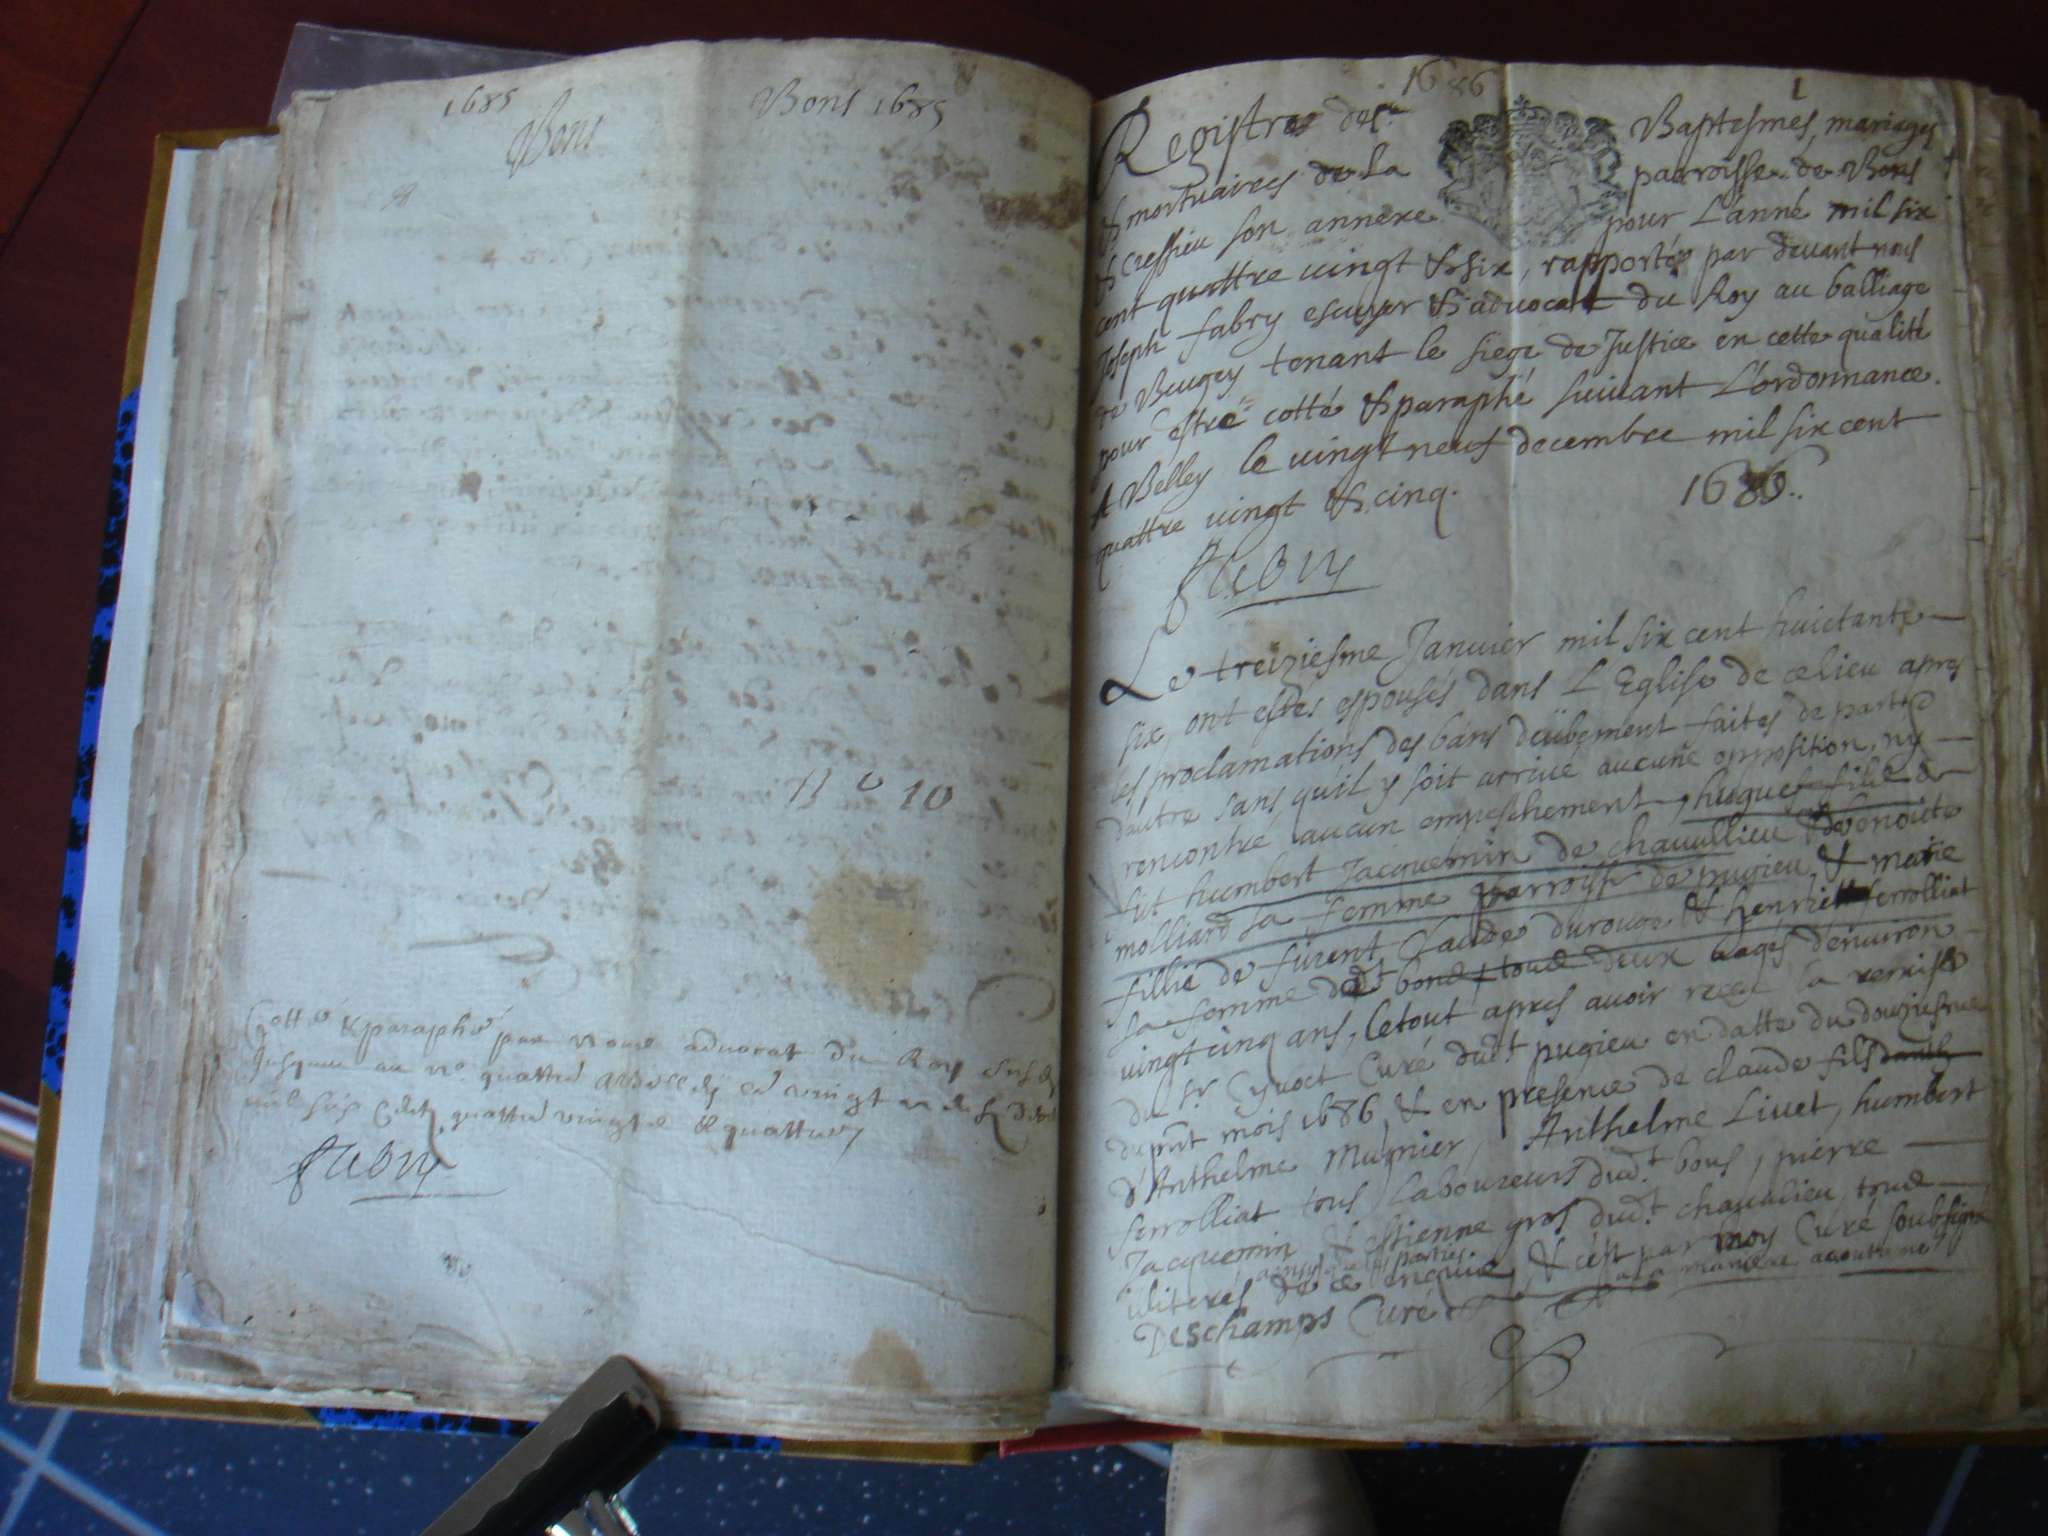 1685
Bons 1685
Bons
11 v 10
Cotté & paraphé par nous advocat du Roy
Jusques au n.º quattre
mil six cent quattre vingt & quattre
Fabry
1686
1
Registre des Baptesmes, mariages
& mortuaires de la parroisse de Bons
& Cressieu son annexe pour L'anné mil six
cent quattre vingt & six, rapporté par devant nous
Joseph fabry escuyer & advocat du Roy au balliage
de Beugey tenant le siege de Justice en cette qualité
pour estre cotté & paraphé suivant L'ordonnance.
A Belley le vingt neuf decembre mil six cent
quattre vingt & cinq.
1686..
Fabry
Le treiziesme Janvier mil six cent huictante
six, ont estés espousés dans L'Eglise de ce lieu apres
les proclamations des bans deübement faites de part &
d'autre sans qu'il y soit arrivé aucune opposition, ny
rencontré aucun empeschement, hugue fils de
fut humbert Jacquemin de chavallieu & benoite
molliard sa femme parroisse de pugieu, & marie
fillie de furent Claude durouge & henrie ferrolliat
sa femme dudt bons tous deux eagés d'environ
vingt cinq ans, le tout apres avoir receu la remise
du Sr. Cyvoct Curé dudt. pugieu en datte du douziesme
du pnt mois 1686, & en presence de claude fils
d'Anthelme Mugnier, Anthelme Livet, humbert
ferrolliat tous Laboureurs dudt. bons, pierre
Jacquemin & estienne gros dudt. chavalieu, tous
ainsy que les parties
illiterés de ce enquis, & c'est par moy Curé soubsigné
a la maniere acoutumé
Deschamps Curé